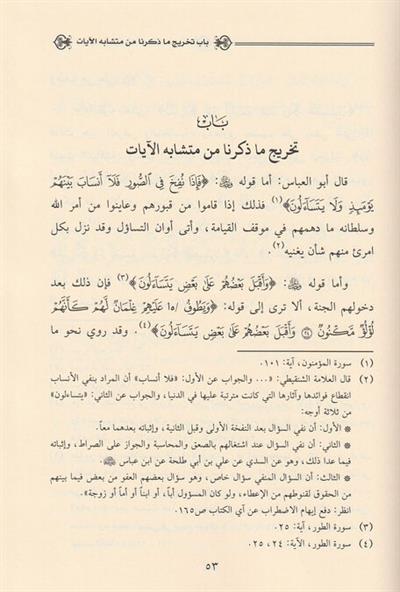 باب تخريج ما ذكرنا من متشابه الآيات
باب
تخريج ما ذكرنا من متشابه الآيات
قال أبو العباس: أما قوله ﷻ: ﴿فَإِذَا نُفِخَ فِي الصُّورِ فَلَآ أَنسَابَ بَيْنَهُمْ
يَوْمَئِذٍ وَلَا يَتَسَآءَلُونَ﴾(١) فذلك إذا قاموا من قبورهم وعاينوا من أمر الله
وسلطانه ما دهمهم في موقف القيامة، وأتى أوان التساؤل وقد نزل بكل
امرئ منهم شأن يغنيه(٢).
وأما قوله ﷻ: ﴿وَأَقْبَلَ بَعْضُهُمْ عَلَىٰ بَعْضٍ يَتَسَآءَلُونَ﴾(٣) فإن ذلك بعد
دخولهم الجنة، ألا ترى إلى قوله: ﴿وَيَطُوفُ /١٥ عَلَيْهِمْ غِلْمَانٌ لَّهُمْ كَأَنَّهُمْ
لُؤْلُؤٌ مَّكْنُونٌ ۝ وَأَقْبَلَ بَعْضُهُمْ عَلَىٰ بَعْضٍ يَتَسَآءَلُونَ﴾(٤). وقد روي نحو ما
(١) سورة المؤمنون، آية: ١٠١.
(٢) قال العلامة الشنقيطي: «... والجواب عن الأول: «فلا أنساب» أن المراد بنفي الأنساب
انقطاع فوائدها وآثارها التي كانت مترتبة عليها في الدنيا، والجواب عن الثاني: «يتساءلون»
من ثلاثة أوجه:
* الأول: أن نفي السؤال بعد النفخة الأولى وقبل الثانية، وإثباته بعدهما معاً.
* الثاني: أن نفي السؤال عند اشتغالهم بالصعق والمحاسبة والجواز على الصراط، وإثباته
فيما عدا ذلك، وهو عن السدي عن علي بن أبي طلحة عن ابن عباس
* الثالث: أن السؤال المنفي سؤال خاص، وهو سؤال بعضهم العفو من بعض فيما بينهم
من الحقوق لقنوطهم من الإعطاء، ولو كان المسؤول أباً، أو ابناً أو أماً أو زوجة».
انظر: دفع إيهام الاضطراب عن آي الكتاب ص١٦٥.
(٣) سورة الطور، آية: ٢٥.
(٤) سورة الطور، الآية: ٢٤، ٢٥.
٥٣